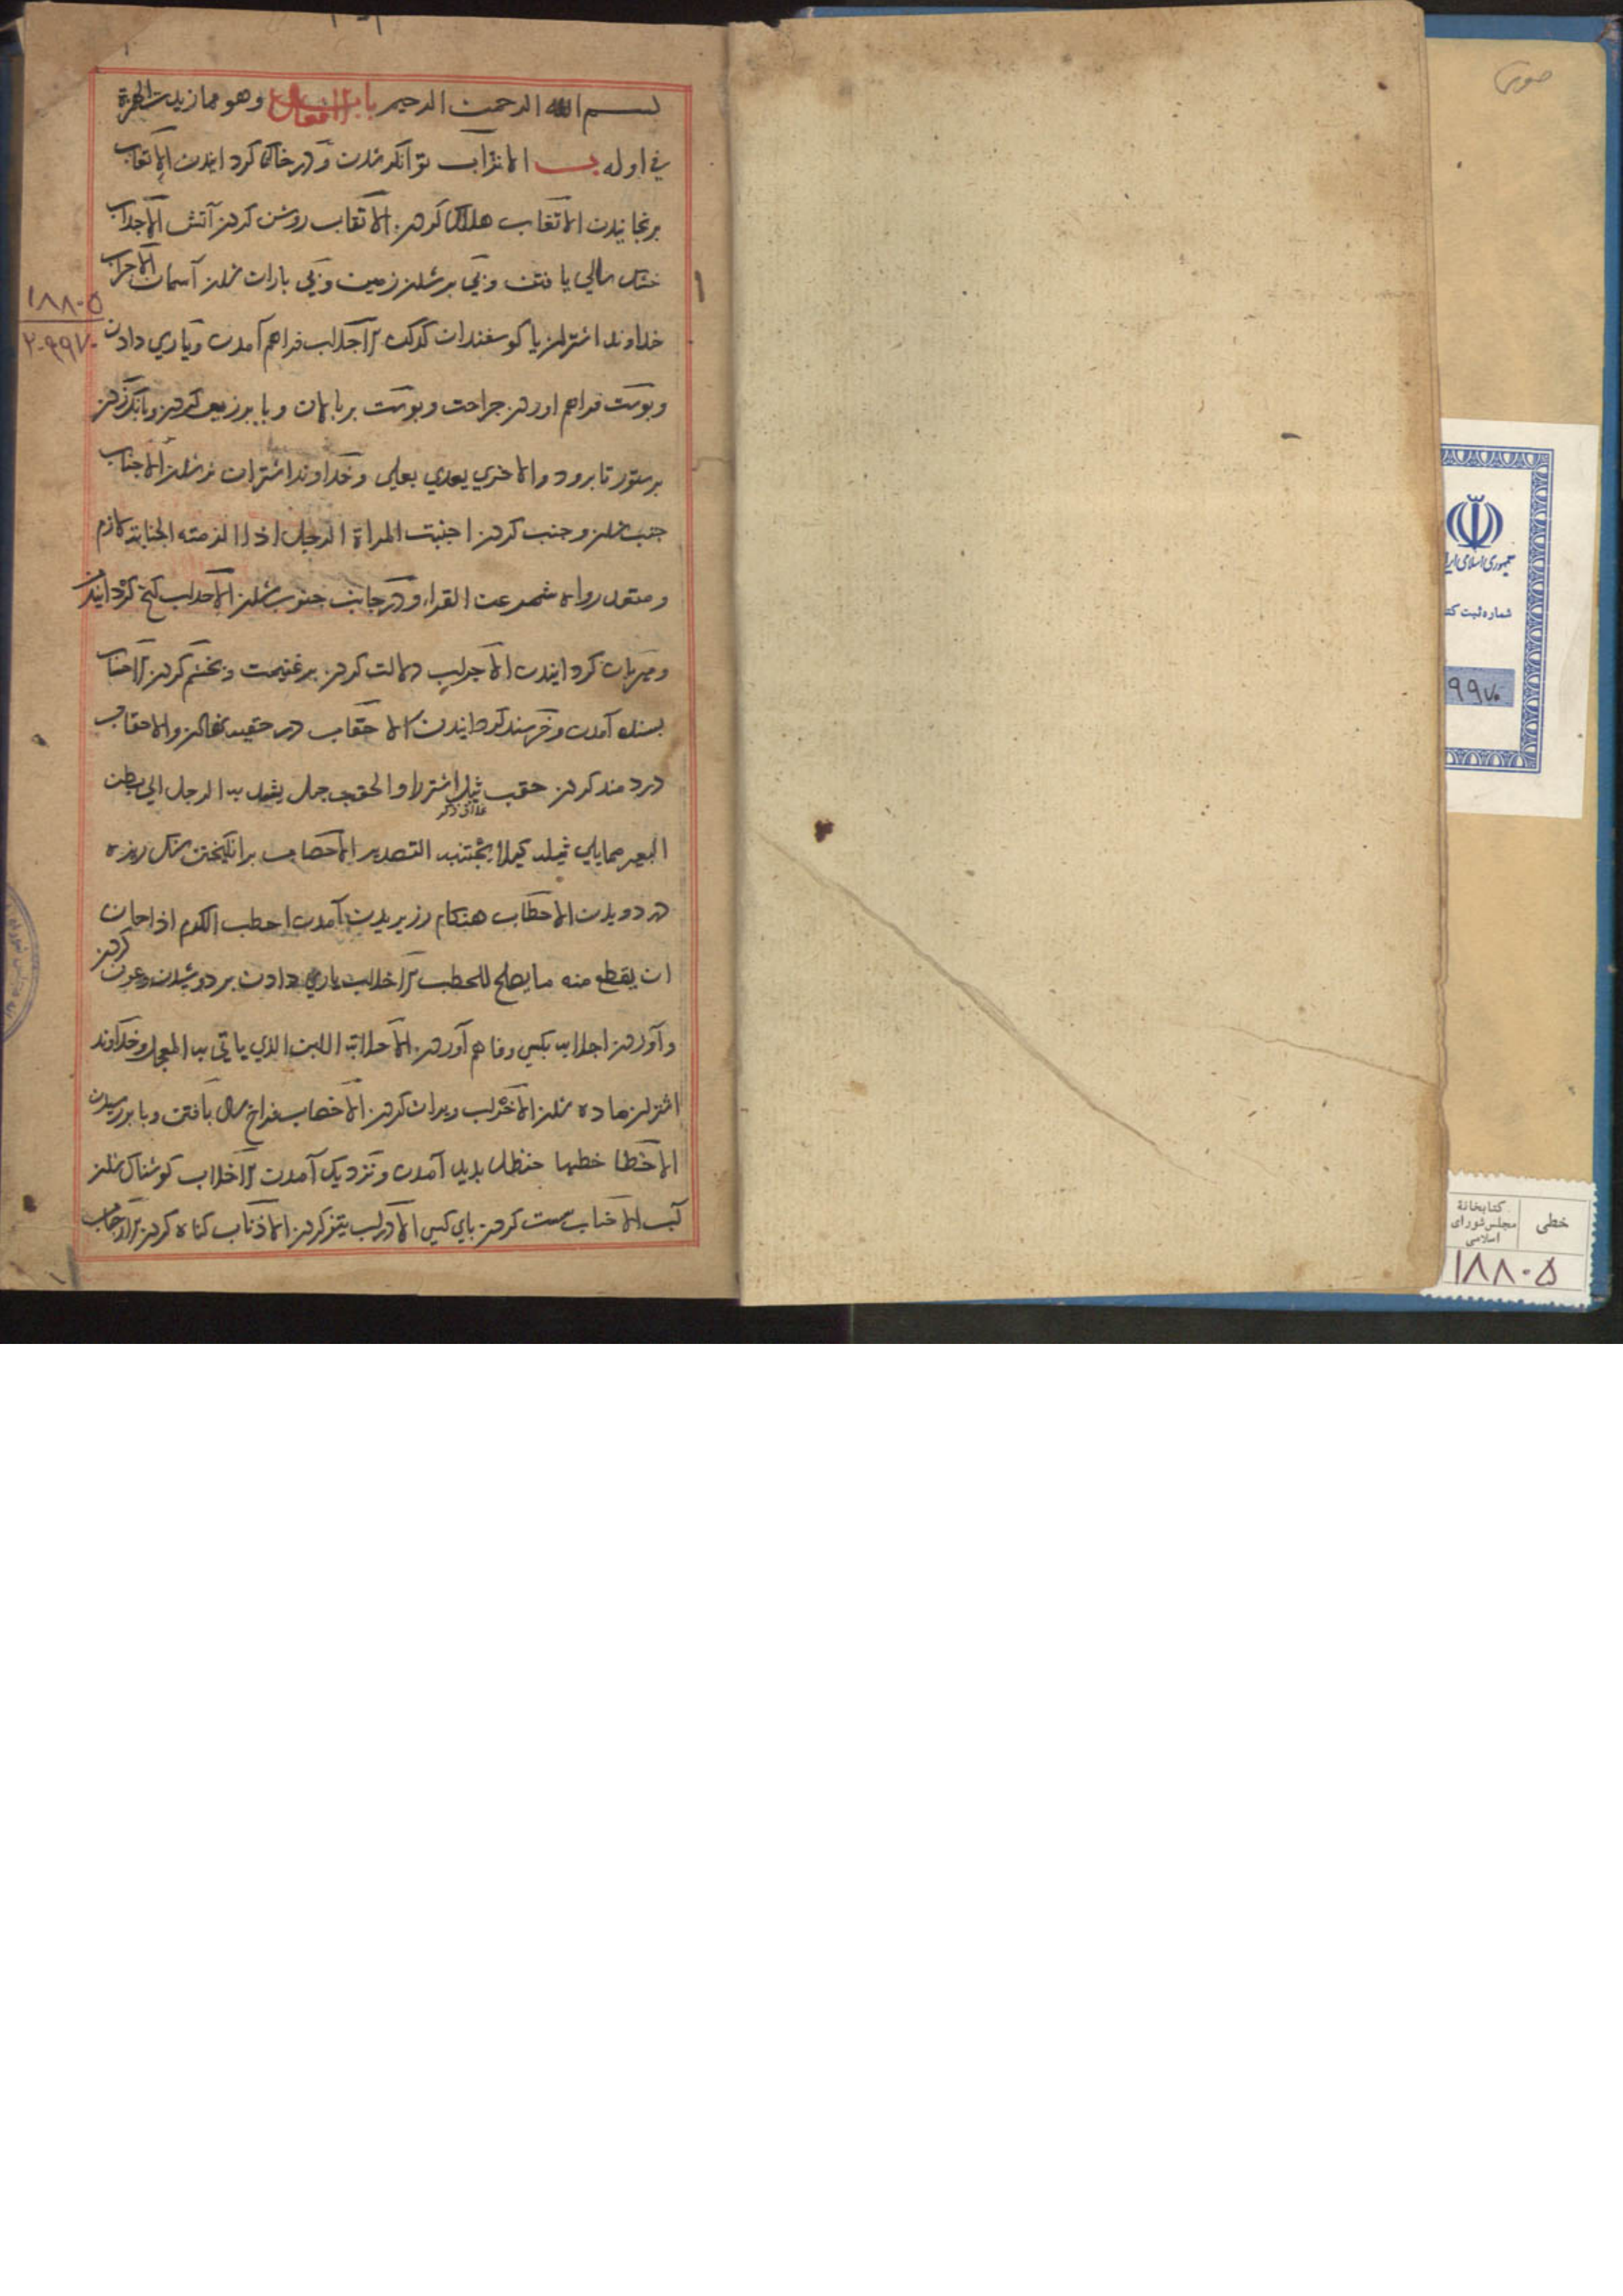 بسم الله الرحمن الرحیم باب الافعال وهو مما زیدت الهمزة
في اوله ب الاتراب توانکر شدن ودر خاک کردانیدن الاتعاب
برنجانیدن الاتغاب هلاک کردن الاثقاب روشن کردن آتش الاجداب
خشک سالی یافتن وبی بر شدن زمین وبی باران شدن آسمان الاجراب
خداوند اشتران یا کوسفندان کرکن الاجلاب فراهم آمدن ویاری دادن
وپوست فراهم اوردن جراحت وپوست بر پالان وبا برزیر کردن وبانک زدن
بر ستور تا برود والاخری یعدی بعلی وخداوند اشتران نر شدن الاجناب
جنب شدن وجنب کردن اجنبت المراة الرجل اذا الزمته الجنابة لازم
ومتعد رواه شمر عن الفراء ودر جانب جنوب شدن الاحداب کج کردانیدن
ومهربان کردانیدن الاحراب دلالت کردن بر غنیمت وبخشم کردن الاحساب
بسنده آمدن وخرسند کردانیدن الاحقاب در حقیبه نهادن والاحقاب
دردمند کردن حقب ثیل اشتر را والحقب حبل یشد به الرحل الی بطن
غلاف ذکر
البعیر مما یلی ثیله کیلا یجتذبه التصدیر الاحصاب برانکیختن سنک ریزه
در دویدن الاحطاب هنکام رز بریدن آمدن احطب الکرم اذا حان
ان یقطع منه ما یصلح للحطب الاحلاب یاری دادن بر دوشیدن وعون کردن
وآوردن احلابه بکسی وفاهم آوردن الاحلابة اللبن الذي یاتی به المعجل وخداوند
اشتران ماده شدن الاخراب ویران کردن الاخصاب فراخ سال یافتن وبا بر رسیدن
الاخطا خطبا حنظل پدید آمدن ونزدیک آمدن الاخلاب کوشناک شدن
آب الاخناب سست کردن پای کسی الاذراب تیز کردن الاذناب کناه کردن الارحاب
۱۸۸۰۵
۲۰۹۹۷۰
۱
جمهوری اسلامی ایرا
شماره ثبت کتا
۹۹۷۰
خطی
کتابخانهٔ
مجلس شورای
اسلامی
۱۸۸۰۵